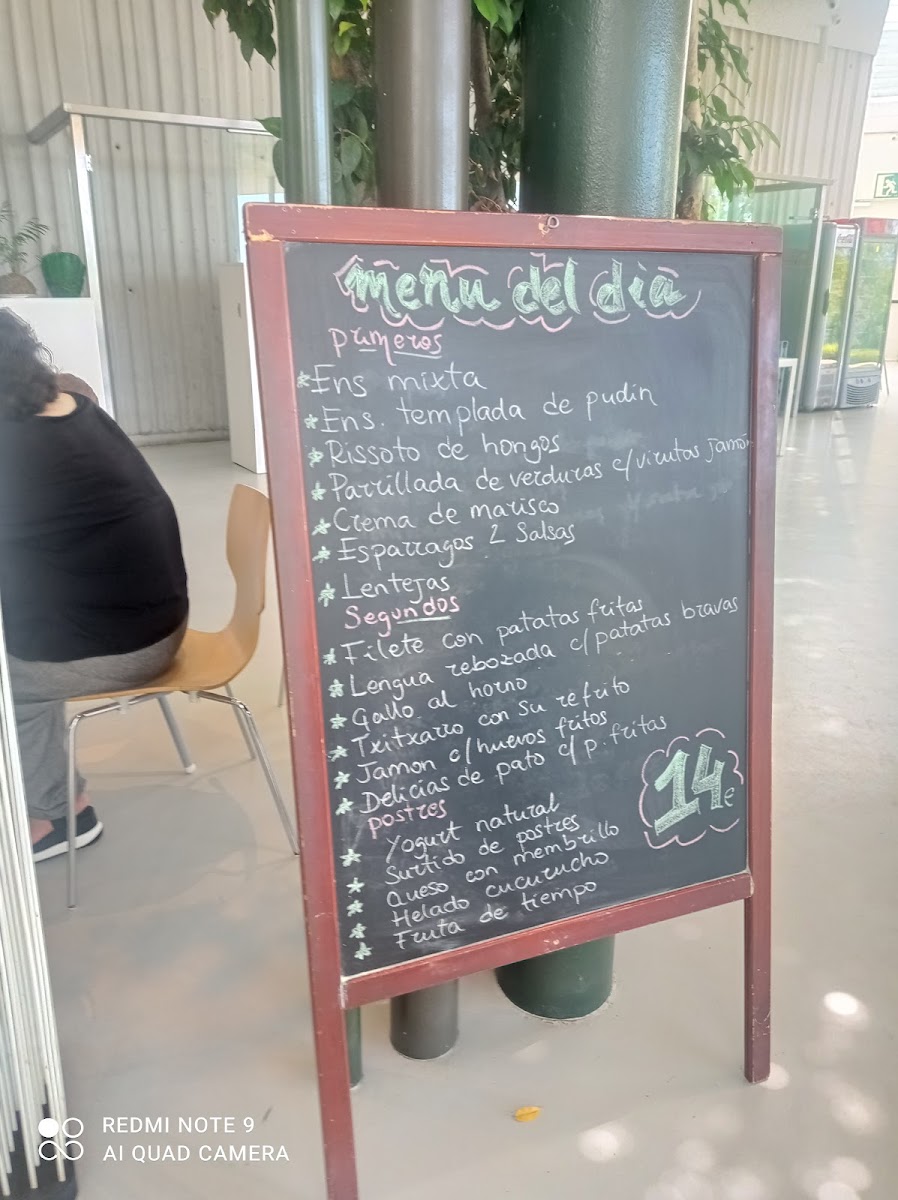 menu del dia
primeros
*Ens mixta
*Ens. templada de pudin
*Rissoto de hongos
*Parrillada de verduras c/virutas jamon
*Crema de marisco
*Esparragos 2 Salsas
*Lentejas
Segundos
*Filete con patatas fritas
*Lengua rebozada c/patatas bravas
*Gallo al horno
*Txitxarro con su refrito
*Jamon c/huevos fritos
*Delicias de pato c/p. fritas
postres
*Yogurt natural
*Surtido de postres
*Queso con membrillo
*Helado cucurucho
*Fruta de tiempo
14€
REDMI NOTE 9
AI QUAD CAMERA